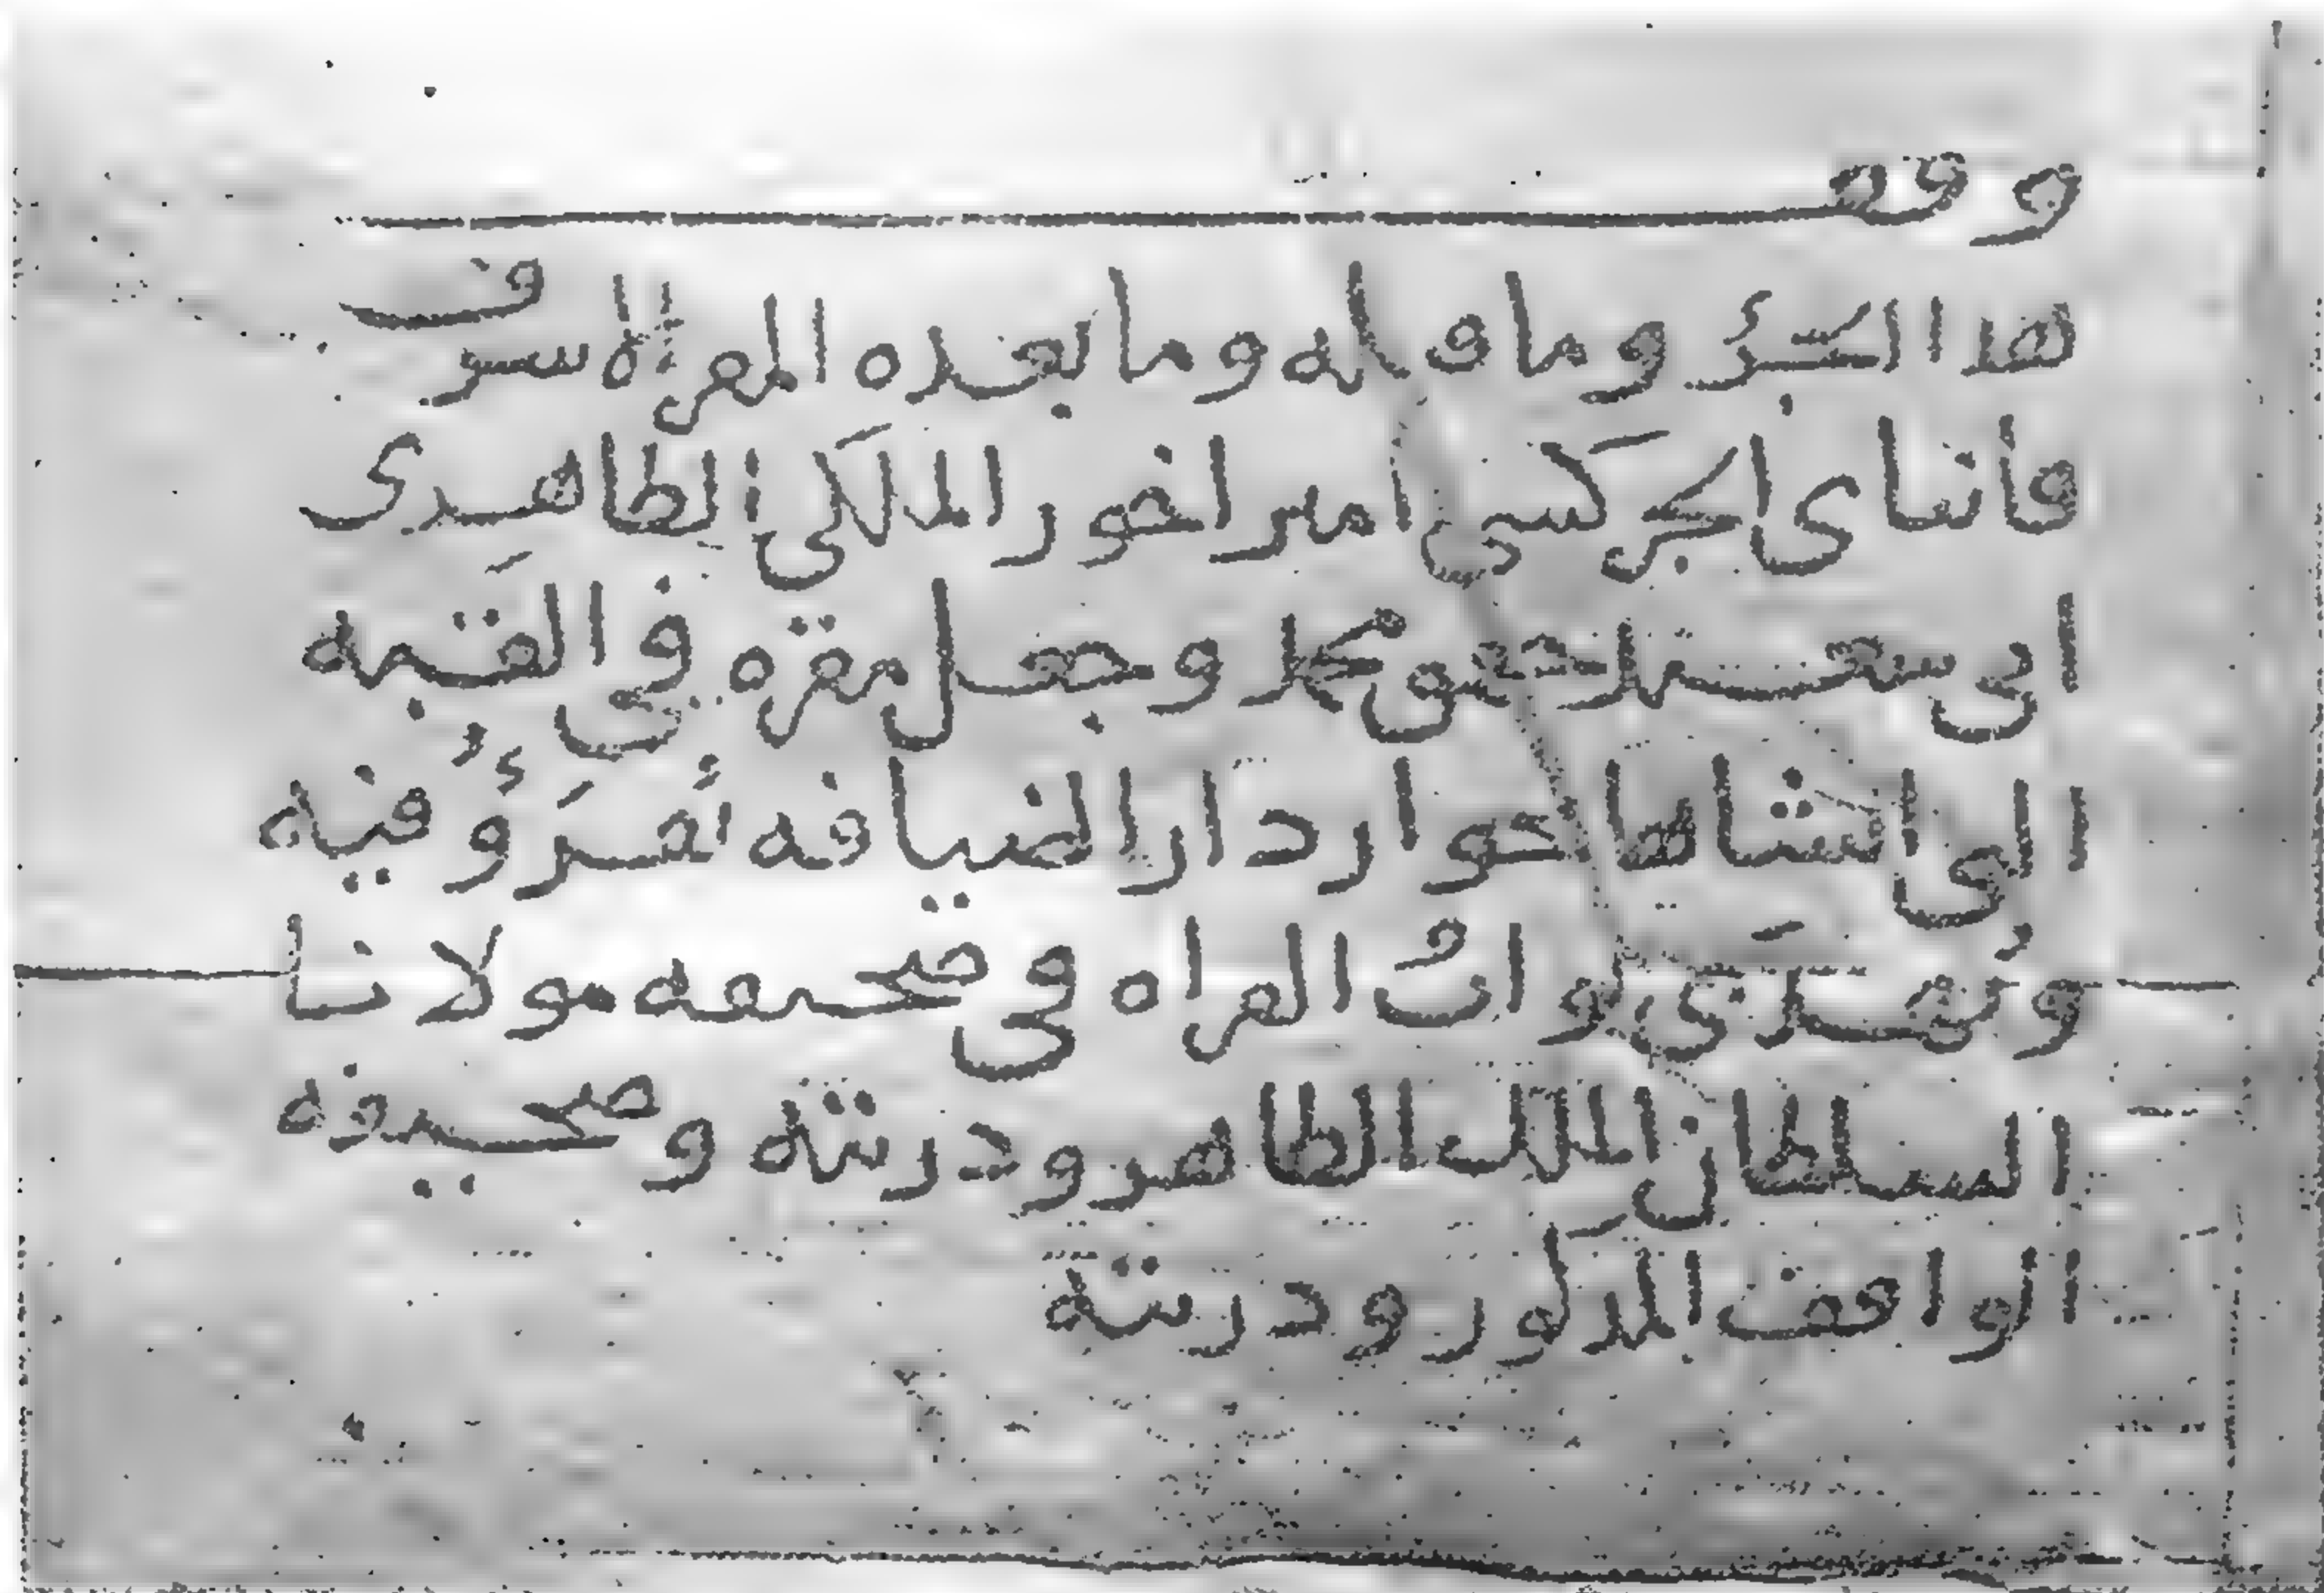 وقف
هذا الجزؤ وما قبله وما بعده المقر الاشرف
قانباى الجركسى امير اخور الملكى الظاهرى
ابى سعيد جقمق محمد وجعل مقره فى القبه
التى انشاها جوار دار الضيافه تُقرَؤُ فيه
ويُهدَى ثواب القراه فى صحيفه مولانا
السلطان الملك الظاهر وذريته وصحيفه
الواقف المذكور وذريته